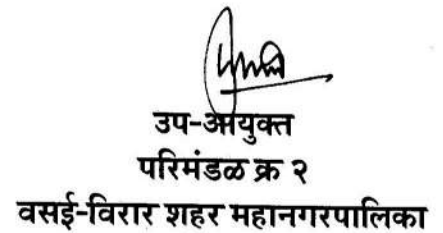 उप-आयुक्त
परिमंडळ क्र २
वसई-विरार शहर महानगरपालिका